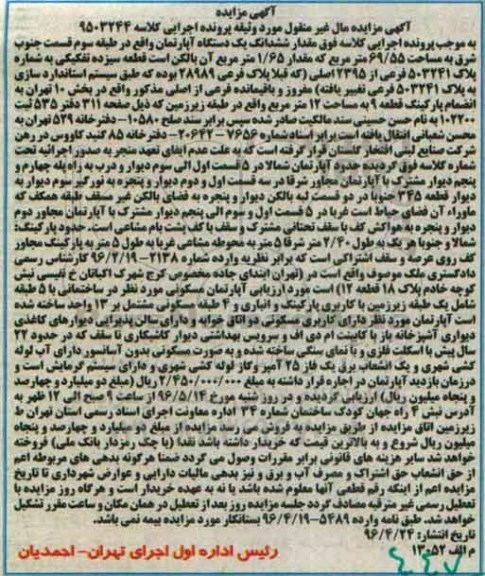 آگهی مزایده
آگهی مزایده مال غیر منقول مورد وثیقه پرونده اجرایی کلاسه ۹۵۰۳۲۴۴
به موجب پرونده اجرایی کلاسه فوق مقدار ششدانگ یک دستگاه آپارتمان واقع در طبقه سوم قسمت جنوب
شرق به مساحت ۶۹/۵۵ متر مربع که مقدار ۱/۶۵ متر مربع آن بالکن است قطعه سیزده تفکیکی به شماره
پلاک ۵۰۳۲۴۱ فرعی از ۲۳۹۵ اصلی (که قبلا پلاک فرعی ۲۸۹۸۹ بوده که طبق سیستم استاندارد سازی
به پلاک ۵۰۳۲۴۱ فرعی تغییر یافته) مفروز و باقیمانده فرعی از اصلی مذکور واقع در بخش ۱۰ تهران به
انضمام پارکینگ قطعه ۹ به مساحت ۱۲ متر مربع واقع در طبقه زیرزمین که ذیل صفحه ۳۱۱ دفتر ۵۳۵ ثبت
۱۰۲۲۰۰ به نام حسن حسینی سند مالکیت صادر شده سپس برابر سند صلح ۱۰۵۸۰- دفترخانه ۵۲۹ تهران به
محسن شعبانی انتقال یافته است برابر اسناد شماره ۷۶۵۶ -۲۰۶۴۲- دفترخانه ۸۵ گنبد کاووس در رهن
شرکت صنایع لبنی افتخار گلستان قرار گرفته است که به علت عدم ایفای تعهد منجر به صدور اجرائیه تحت
شماره کلاسه فوق گردیده حدود آپارتمان شمالا در ۵ قسمت اول الی سوم دیوار و درب به راه پله چهارم و
پنجم دیوار مشترک با آپارتمان مجاور شرقا در سه قسمت اول و دوم دیوار و پنجره به نورگیر سوم دیوار به
دیوار قطعه ۳۴۵ جنوبا در دو قسمت لبه بالکن دیوار و پنجره به فضای بالکن غیر مسقف طبقه همکف که
ماوراء آن فضای حیاط است غربا در ۵ قسمت اول و سوم الی پنجم دیوار مشترک با آپارتمان مجاور دوم
دیوار و پنجره به هواکش کف با سقف تحتانی مشترک و سقف با کف پشت بام مشاعی است. حدود پارکینگ:
شمالا و جنوبا هر یک به طول ۲/۴۰ متر شرقا ۵ متر به محوطه مشاعی غربا به طول ۵ متر به پارکینگ مجاور
کف روی عرصه و سقف اشتراکی است که برابر نظریه وارده شماره ۲۱۳۸- ۹۶/۲/۱۹ کارشناس رسمی
دادگستری ملک موصوف واقع است در (تهران ابتدای جاده مخصوص کرج شهرک اکباتان خ نفیسی نبش
کوچه خادم پلاک ۱۸ قطعه ۱۲) است مورد ارزیابی آپارتمان مسکونی مورد نظر در ساختمانی با ۵ طبقه
شامل یک طبقه زیرزمین با کاربری پارکینگ و انباری و ۴ طبقه مسکونی مشتمل بر ۱۳ واحد ساخته شده
است آپارتمان مورد نظر دارای کاربری مسکونی دو اتاق خوابه و دارای سالن پذیرایی دیوارهای کاغذی
دیواری آشپزخانه باز با کابینت ام دی اف و سرویس بهداشتی دیوار کاشیکاری تا سقف که در حدود ۲۲
سال پیش با اسکلت فلزی و با نمای سنگی ساخته شده و به صورت مسکونی بدون آسانسور دارای آب لوله
کشی شهری و یک انشعاب برق یک فاز ۲۵ آمپر و گاز لوله کشی شهری و دارای سیستم گرمایش است و
در زمان بازدید آپارتمان در اجاره قرار داشته به مبلغ ۲/۴۵۰/۰۰۰/۰۰۰ ریال (مبلغ دو میلیارد و چهارصد
و پنجاه میلیون ریال) ارزیابی گردیده و در روز شنبه مورخ ۹۶/۵/۱۴ از ساعت ۹ صبح الی ۱۲ ظهر به
آدرس نبش ۴ راه جهان کودک ساختمان شماره ۳۴ اداره معاونت اجرای اسناد رسمی استان تهران ط
زیرزمین اتاق مزایده از طریق مزایده به فروش می رسد مزایده از مبلغ دو میلیارد و چهارصد و پنجاه
میلیون ریال شروع و به بالاترین قیمت که خریدار داشته باشد نقدا (با چک رمزدار بانک ملی) فروخته
خواهد شد سایر هزینه های قانونی برابر مقررات وصول می گردد ضمنا هرگونه بدهی های مربوطه اعم
از حق انشعاب حق اشتراک و مصرف آب و برق و نیز بدهی مالیات دارایی و عوارض شهرداری تا تاریخ
مزایده اعم از اینکه رقم قطعی آنها معلوم شده باشد یا نه به عهده خریدار است و هرگاه روز مزایده با
تعطیل رسمی غیر مترقبه مصادف گردد جلسه مزایده روز بعد از تعطیل در همان مکان و ساعت مقرر تشکیل
خواهد شد. طبق نامه وارده ۵۴۸۹-۹۶/۴/۱۹ بستانکار مورد مزایده بیمه نمی باشد.
تاریخ انتشار: ۹۶/۴/۲۴
م الف ۱۳۰۵۲
رئیس اداره اول اجرای تهران- احمدیان